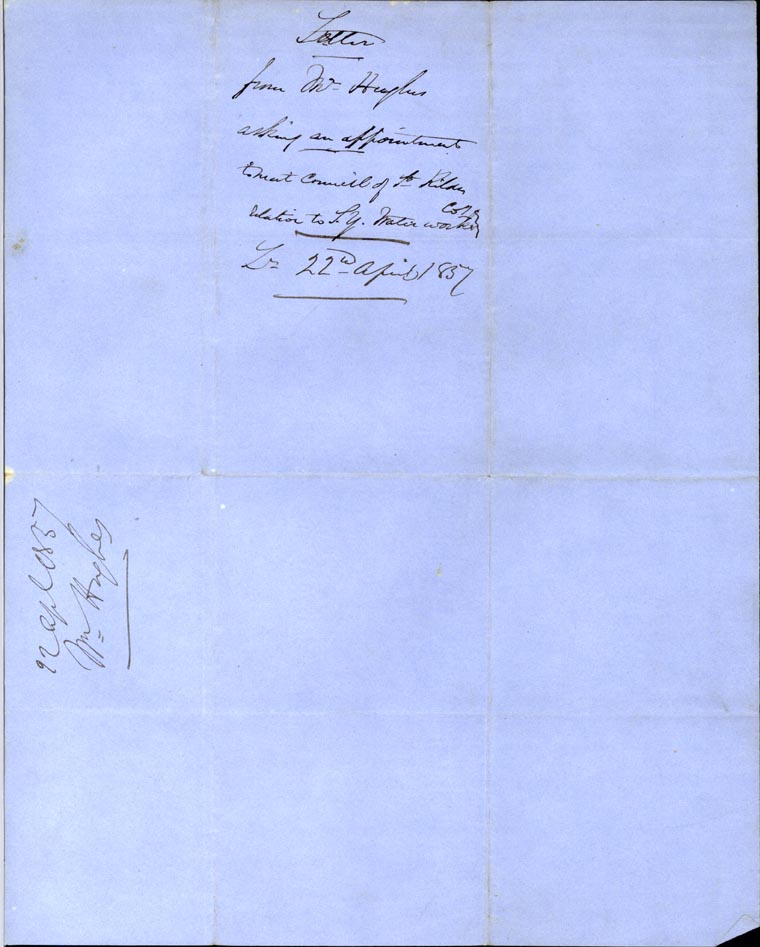 Letter
from Mr Hughes
asking an appointment
to meet Council of St Kilda
relative to S. Y. Water works
Coy
22nd April 1857
22 Apl 1857
Mr Hughes